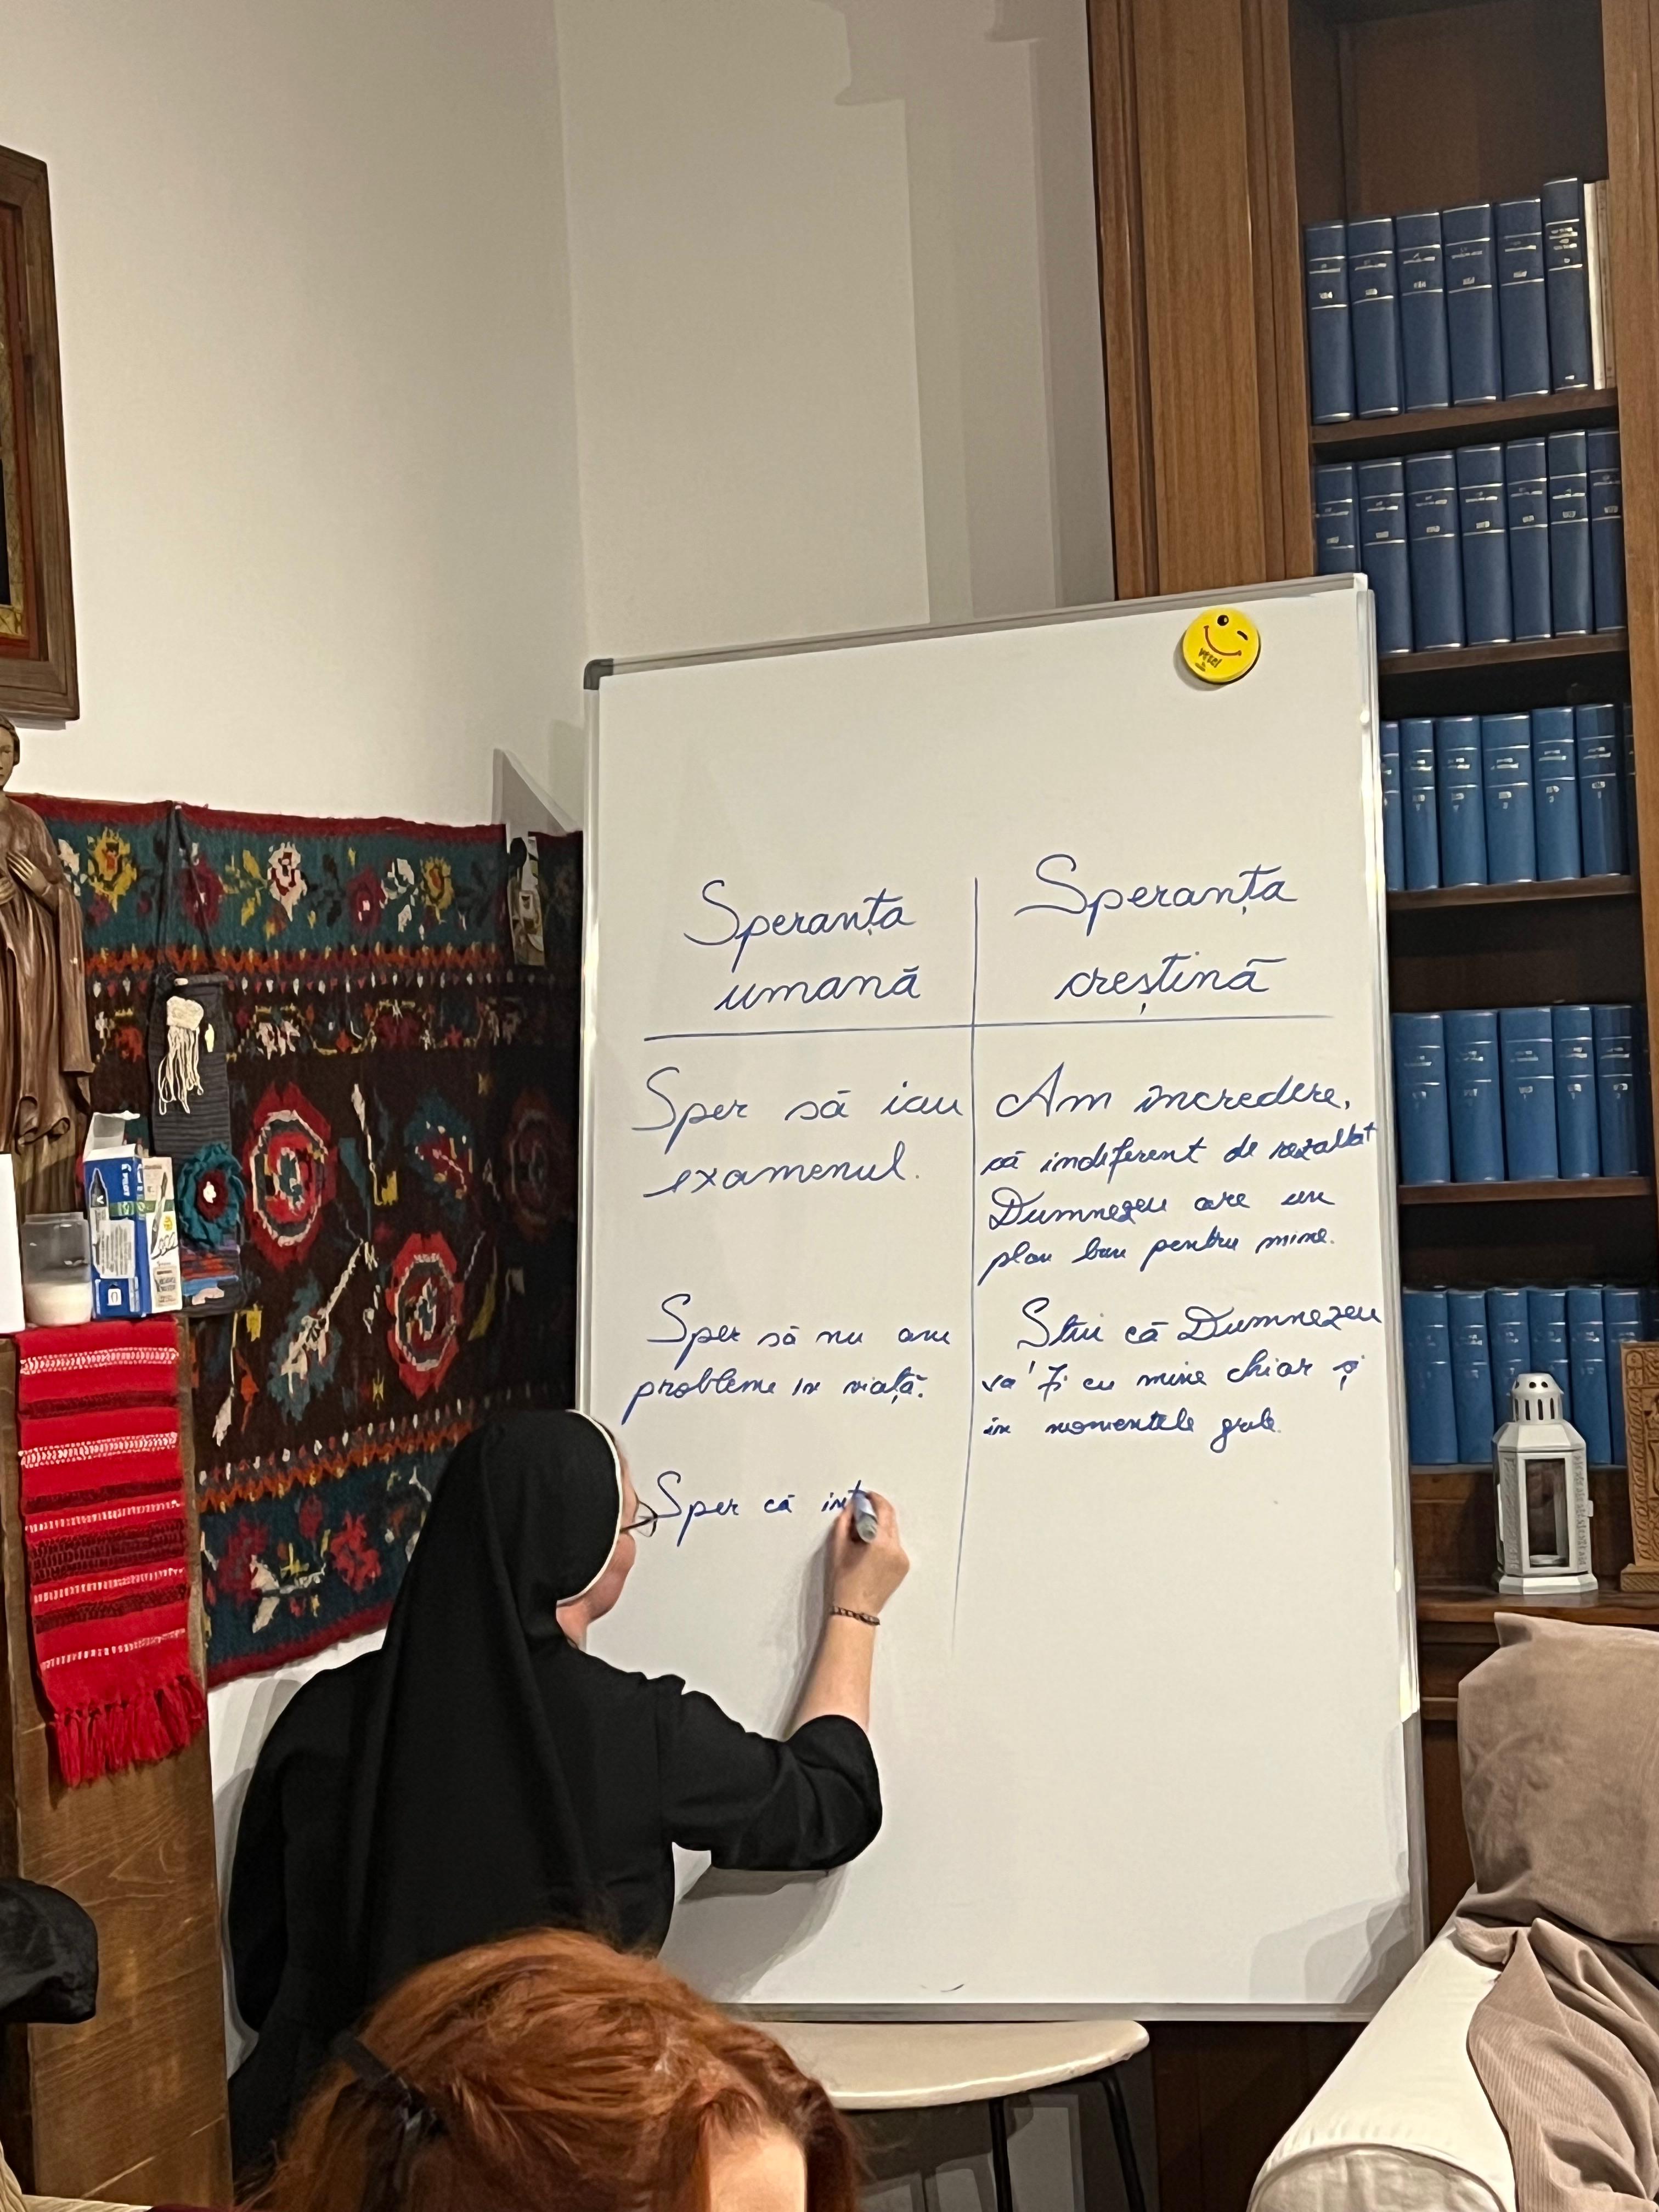 Speranța
umană
Speranța
creștină
Sper să iau
examenul.
Am încredere,
că indiferent de rezultat
Dumnezeu are un
plan bun pentru mine.
Sper să nu am
probleme în viață.
Știu că Dumnezeu
va fi cu mine chiar și
în momentele grele.
Sper că int